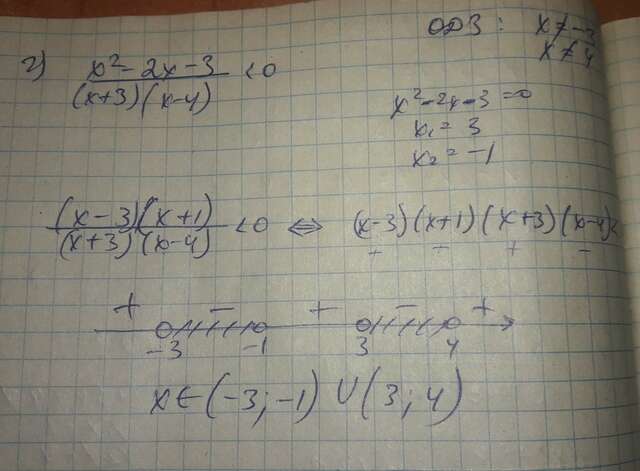 ОДЗ: x ≠ -3
x ≠ 4
г) x² - 2x - 3 / (x+3)(x-4) < 0
x² - 2x - 3 = 0
x₁ = 3
x₂ = -1
(x-3)(x+1) / (x+3)(x-4) < 0 ⇔ (x-3)(x+1)(x+3)(x-4) <
+ - + -
+ - + - +
-3 -1 3 4
x ∈ (-3; -1) ∪ (3; 4)